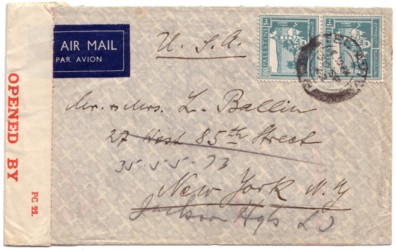 AIR MAIL
PAR AVION
U.S.A.
OPENED BY
PC 22.
Mr. & Mrs. L. Ballin
27 West 85th Street
35-5-5-73
New York N.Y
Jackson Hgts L I